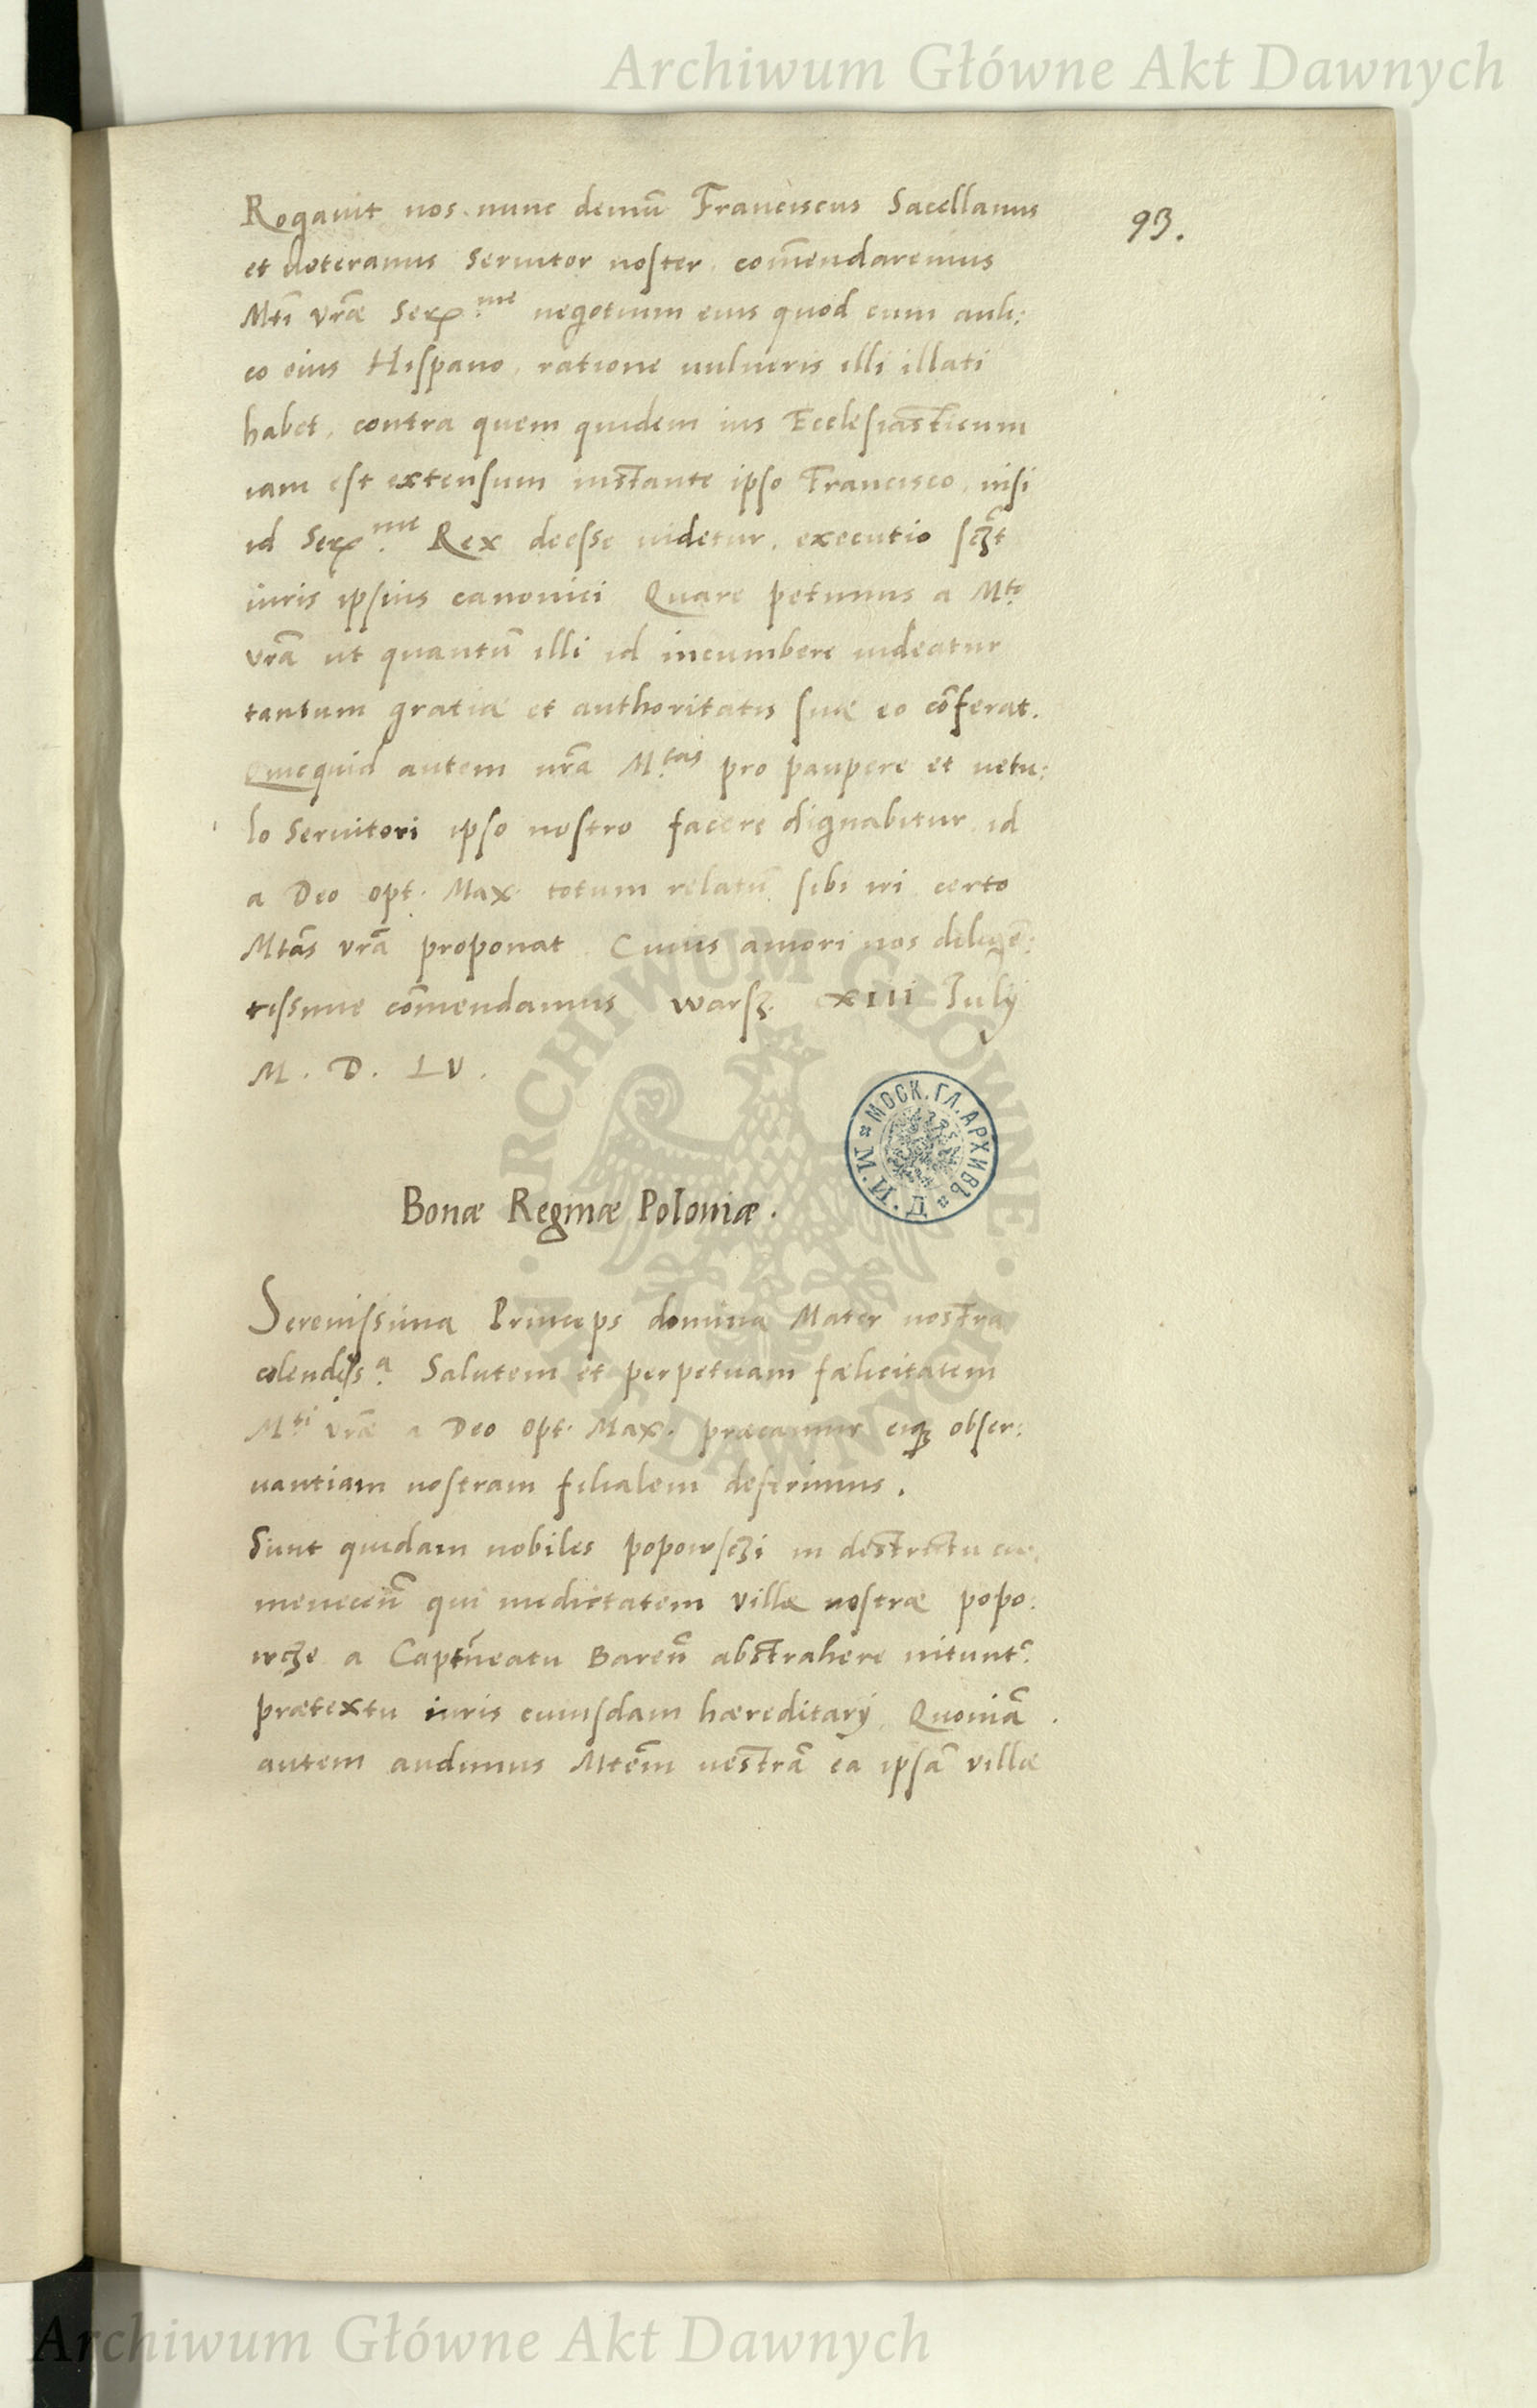 Archiwum Główne Akt Dawnych
93.
Rogauit nos nunc demū Franciscus Sacellanus
et ueteranus Seruitor noster, com̄endaremus
Mti vr̄æ Ser.me negotium eius quod cum auli:
co eius Hispano, ratione uulneris illi illati
habet, contra quem quidem ius Ecclesiasticum
iam est extensum instante ipso Francisco, nisi
id Ser.me Rex deesse uidetur, executio
iuris ipsius canonici Quare petimus a Mte
vrā ut quantū illi id incumbere uideatur
tantum gratiæ et authoritatis suæ eo cōferat.
Quicquid autem urā M.tas pro paupere et uetu:
lo Seruitori ipso nostro facere dignabitur, id
a Deo Opt. Max. totum relatū sibi iri certo
Mtās vrā proponat. Cuius amori nos diligē:
tissime cōmendamus Warsz. XIII July
M. D. LV.
МОСК. ГЛ. АРХИВЪ М. И. Д.
Bonæ Reginæ Poloniæ.
Serenissima Princeps domina Mater nostra
colendiss.a Salutem et perpetuam fælicitatem
M.ti vrāe a Deo Opt. Max. præcamur eiq obser:
uantiam nostram filialem deferimus.
Sunt quidam nobiles popowsczi in destrictu ca:
menecen̄ qui medietatem villæ nostræ popo:
wcze a Captn̄eatu Baren̄ abstrahere nitunt.
prætextu iuris cuiusdam hæreditarÿ, Quoniā
autem audimus Mtēm uestrā ea ipsā villæ
ARCHIWUM GŁÓWNE AKT DAWNYCH
Archiwum Główne Akt Dawnych